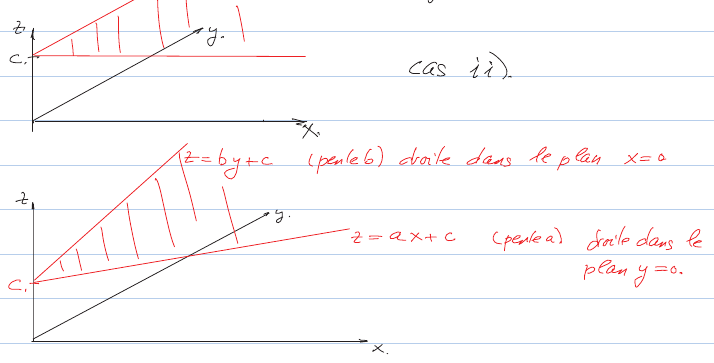 z
y.
c.
cas ii).
x.
z = by + c (pente b) droite dans le plan x = 0
z
y.
z = ax + c (pente a) droite dans le
plan y = 0.
c.
x.